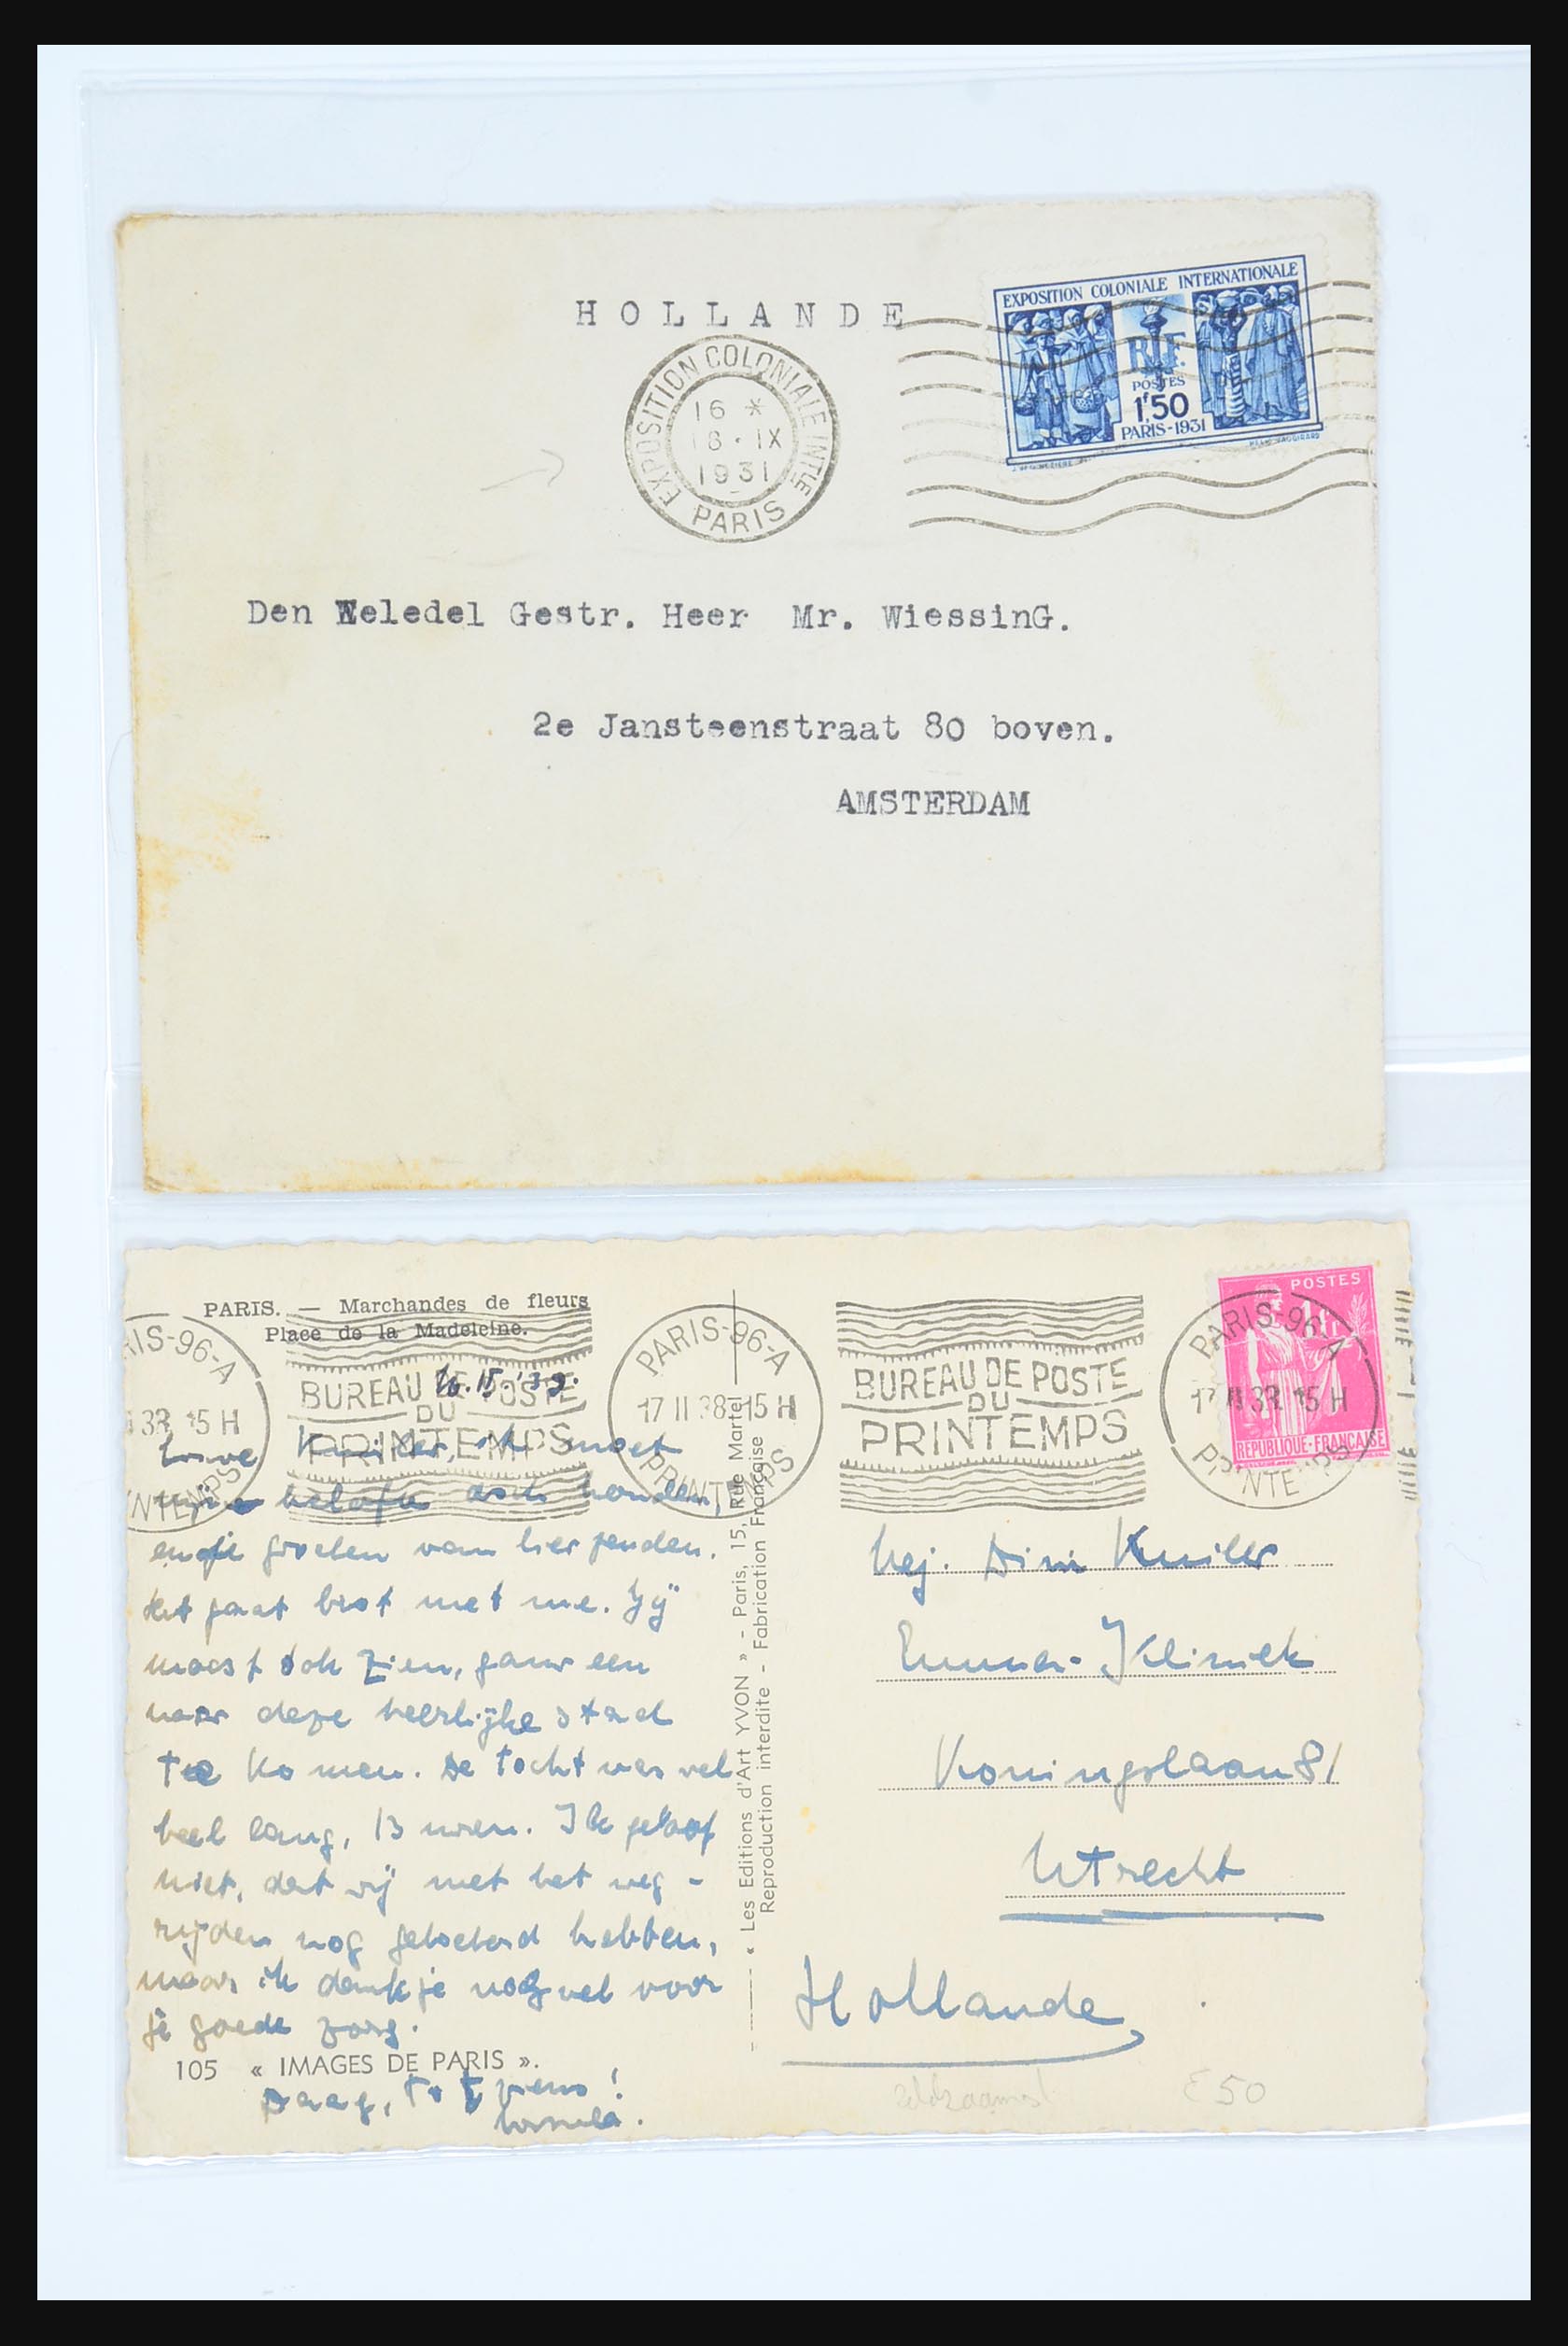 HOLLANDE
EXPOSITION COLONIALE INTERNATIONALE
R.F.
POSTES
1f50
PARIS-1931
EXPOSITION COLONIALE INTLE
16 *
18 · IX
1931
PARIS
Den Weledel Gestr. Heer Mr. WiessinG.
2e Jansteenstraat 80 boven.
AMSTERDAM
PARIS. — Marchandes de fleurs
Place de la Madeleine.
BUREAU DE POSTE
DU
PRINTEMPS
PARIS-96-A
17 II 38 15 H
PRINTEMPS
BUREAU DE POSTE
DU
PRINTEMPS
PARIS-96-A
15 H
PRINTEMPS
POSTES
1fr
REPUBLIQUE-FRANÇAISE
IS-96-A
38 15 H
NTEMPS
Lieve ik moet
mijn belofte ook houden,
en je groeten van hier zenden.
Het gaat best met me. Jij
moest ook zien, gauw een
naar deze heerlijke stad
te komen. De tocht was wel
heel lang, 13 uren. Ik geloof
niet, dat wij met het weg-
rijden nog getoeterd hebben,
maar ik dank je nog wel voor
je goede zorg.
105 « IMAGES DE PARIS ».
Daag, tot ziens!
« Les Editions d'Art YVON » - Paris, 15, Rue Martel
Reproduction interdite - Fabrication Française
Mej. Dini
Emma-Kliniek
Koningslaan 81
Utrecht
Hollande
zeldzaam!
£50